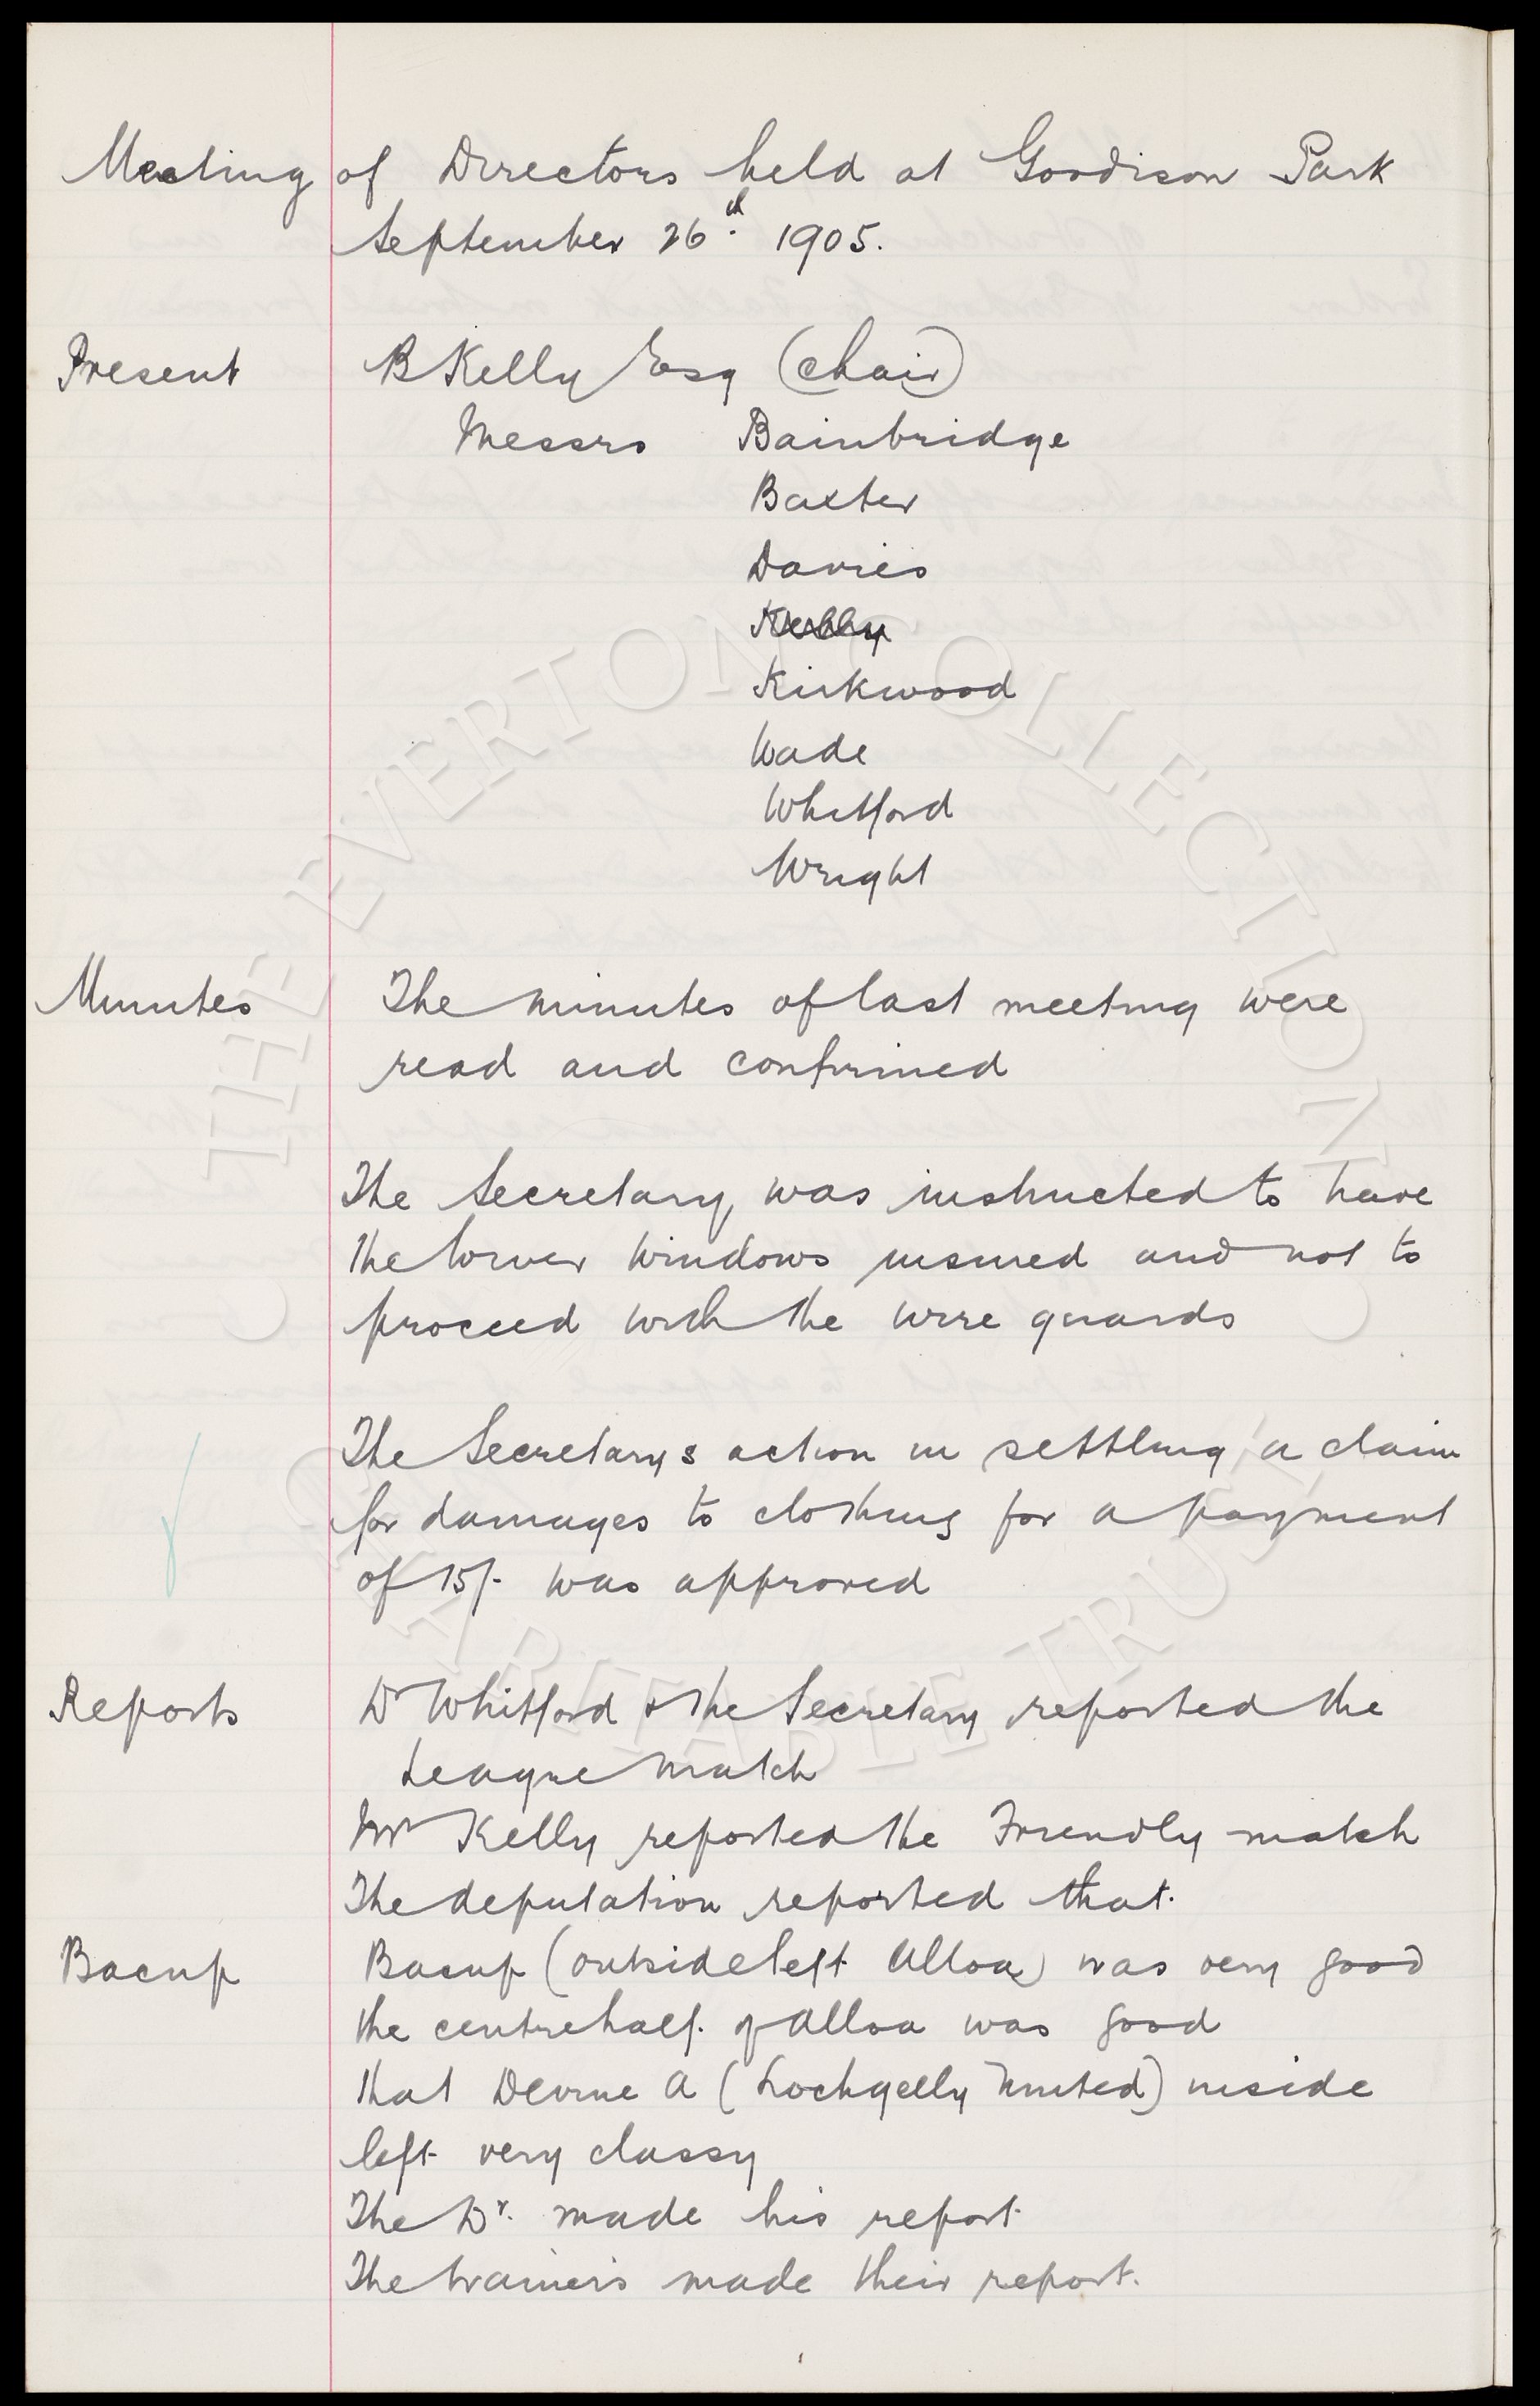 Meeting of Directors held at Goodison Park
September 26th 1905.
Present B Kelly Esq (chair)
Messrs Bainbridge
Baxter
Davies
Kelly
Kirkwood
Wade
Whitford
Wright
Minutes The minutes of last meeting were
read and confirmed
The Secretary was instructed to have
the lower windows insured and not to
proceed with the wire guards
The Secretarys action in settling a claim
for damages to clothing for a payment
of 15/- was approved
Reports Dr Whitford & the Secretary reported the
League match
Mr Kelly reported the Friendly match
The deputation reported that
Bacup Bacup (outside left Alloa) was very good
the centre half of Alloa was good
that Devine A (Lochgelly United) inside
left very classy
The Dr. made his report
The trainers made their report.
THE EVERTON COLLECTION
CHARITABLE TRUST